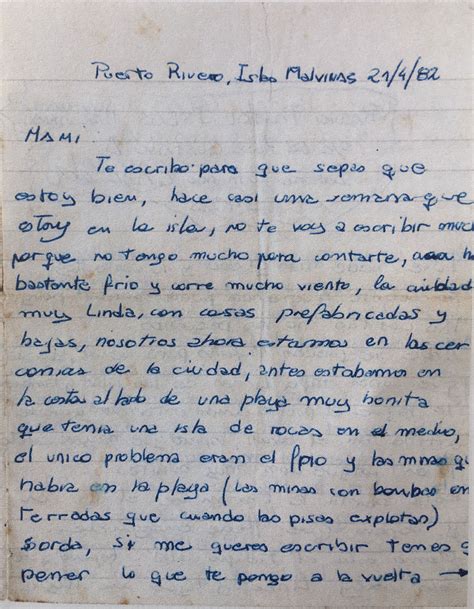 Puerto Rivero, Islas Malvinas 21/4/82
MAMI
Te escribo para que sepas que
estoy bien, hace casi una semana que
estoy en la isla, no te voy a escribir
porque no tengo mucho para contarte,
bastante frio y corre mucho viento, la ciudad
muy Linda, con casas prefabricadas y
bajas, nosotros ahora estamos en las cer
canias de la ciudad, antes estabamos en
la costa al lado de una playa muy bonita
que tenia una isla de rocas en el medio,
el unico problema eran el frio y las minas q
habia en la playa (las minas son bombas en
terradas que cuando las pisas explotan)
gorda, si me queres escribir tenes q
poner lo que te pongo a la vuelta →